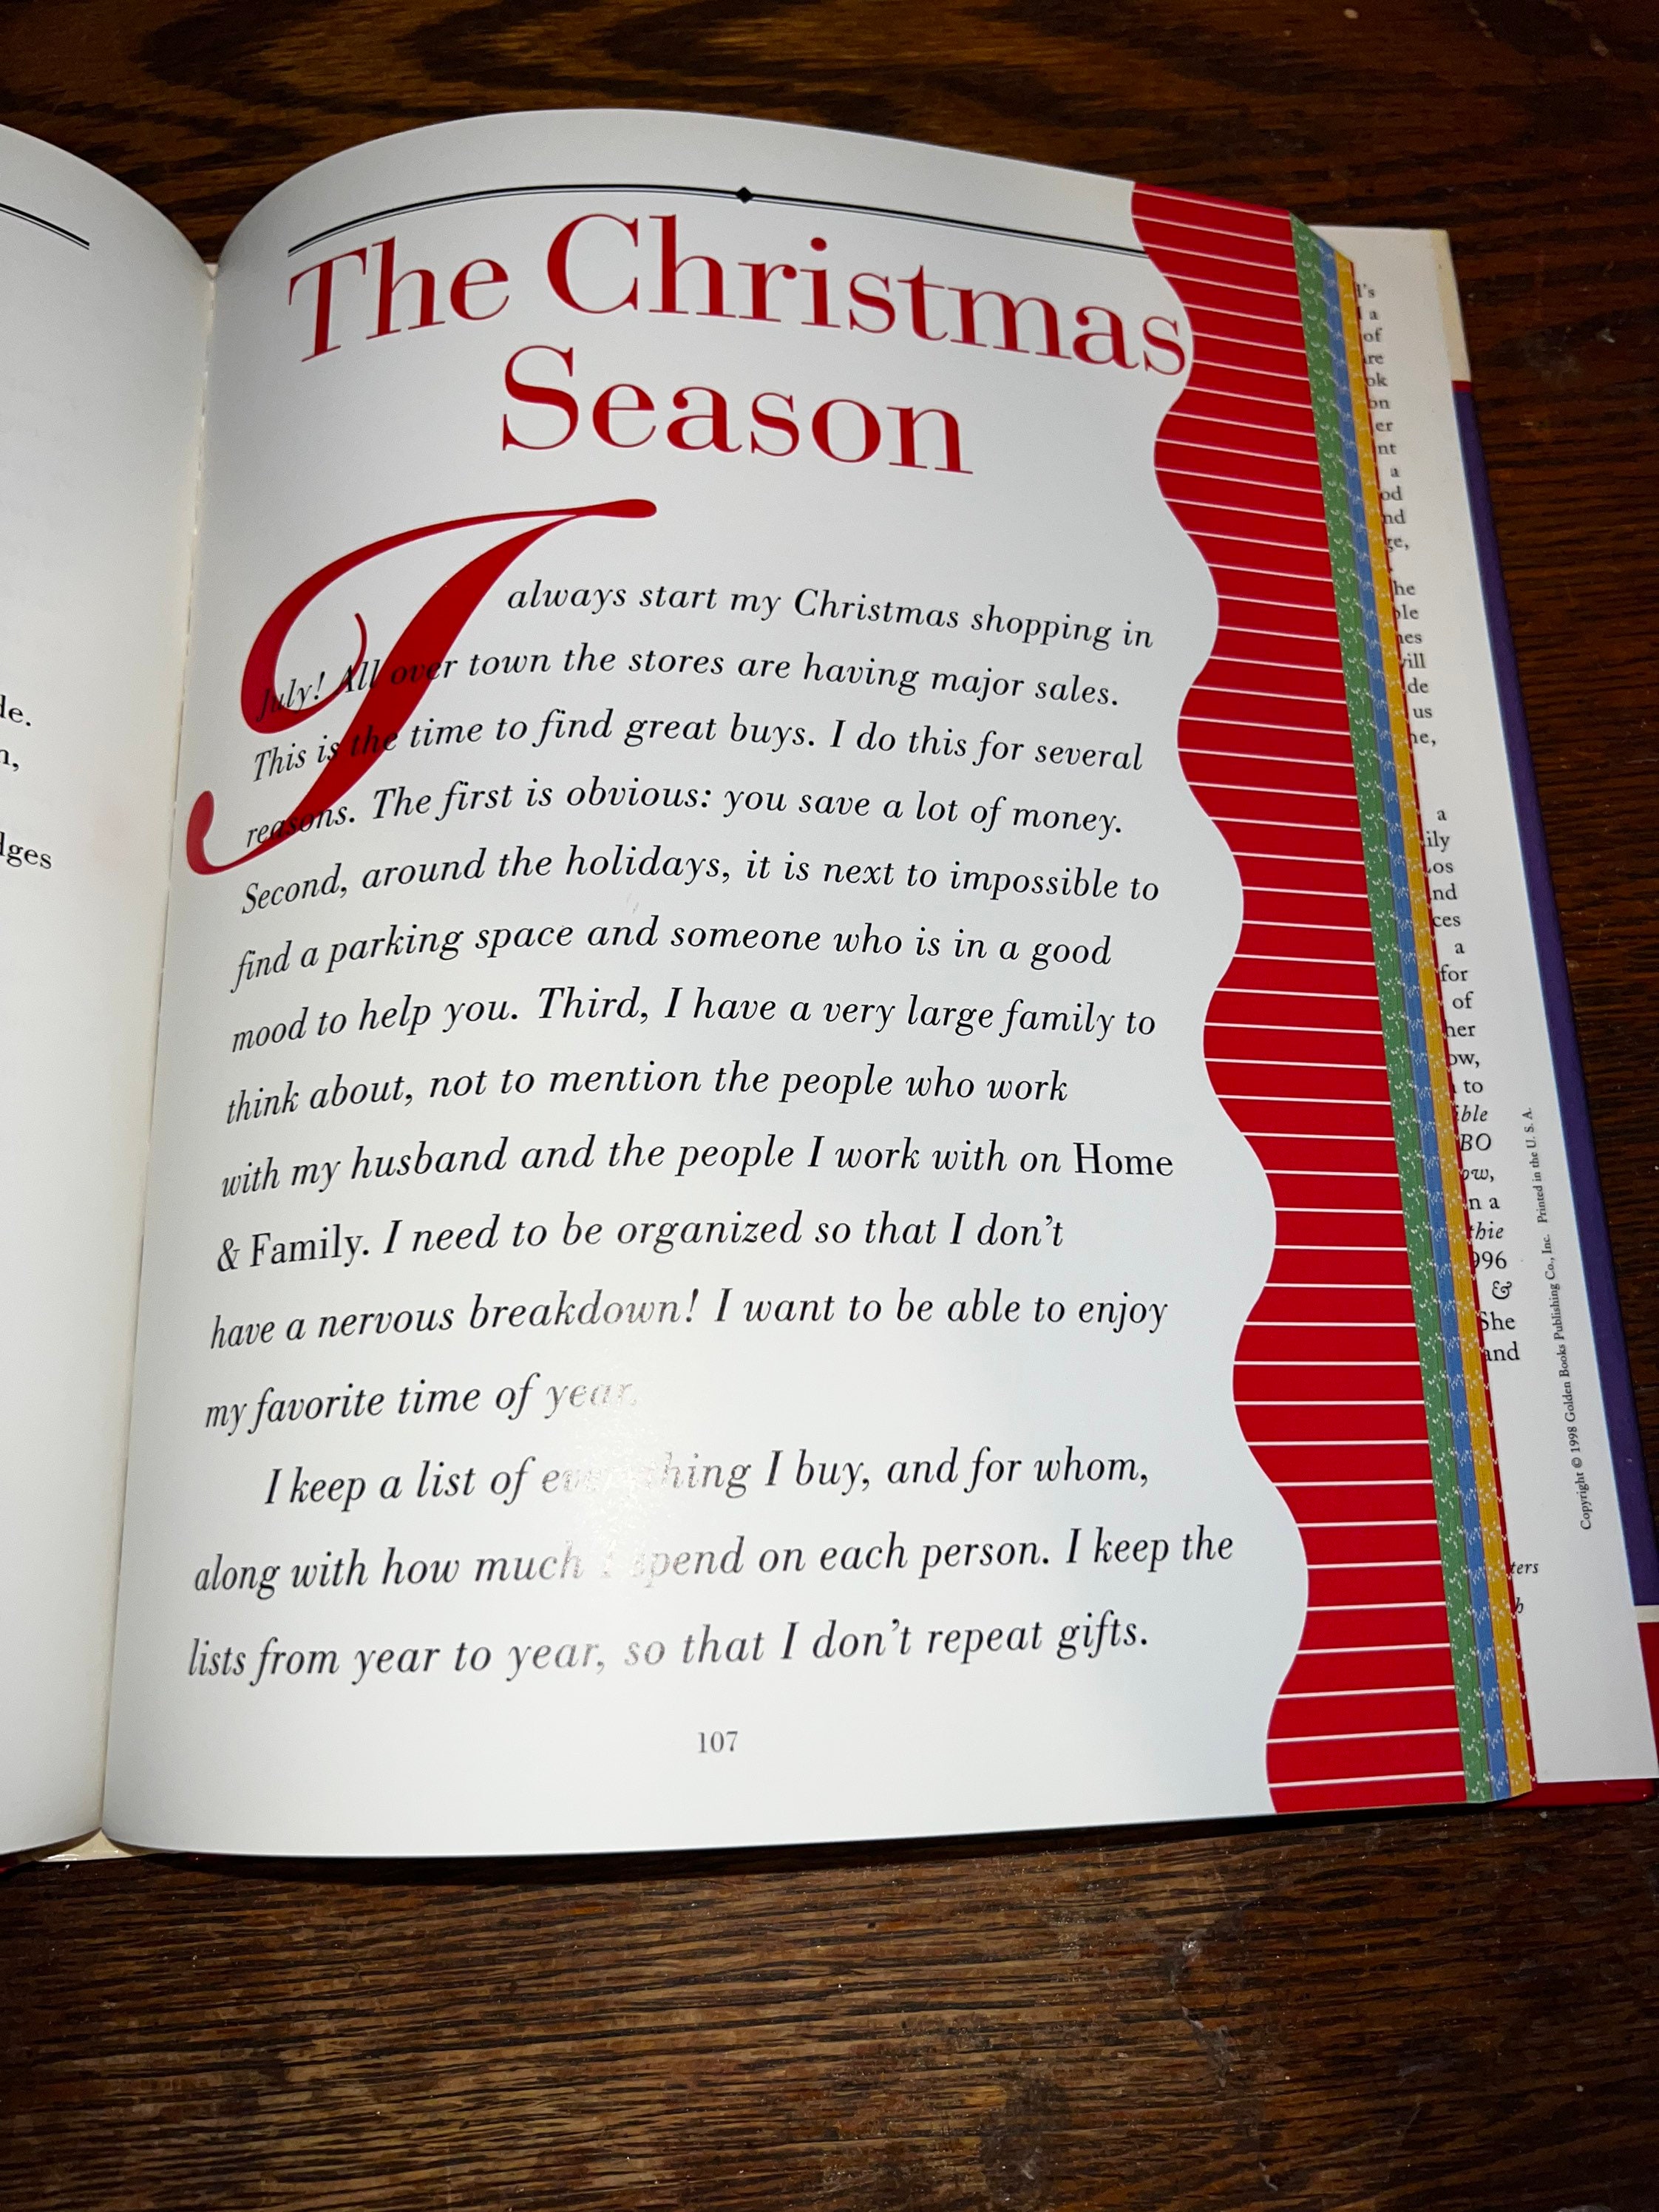 de.
n,
dges
The Christmas
Season
I always start my Christmas shopping in
July! All over town the stores are having major sales.
This is the time to find great buys. I do this for several
reasons. The first is obvious: you save a lot of money.
Second, around the holidays, it is next to impossible to
find a parking space and someone who is in a good
mood to help you. Third, I have a very large family to
think about, not to mention the people who work
with my husband and the people I work with on Home
& Family. I need to be organized so that I don't
have a nervous breakdown! I want to be able to enjoy
my favorite time of year.
I keep a list of everything I buy, and for whom,
along with how much I spend on each person. I keep the
lists from year to year, so that I don't repeat gifts.
107
l's
a
of
are
ok
on
er
nt
a
od
nd
ge,
he
ple
nes
vill
de
us
ne,
a
ily
Los
and
ces
a
for
of
her
ow,
to
ible
BO
ow,
n a
thie
996
&
She
and
ters
h
Copyright © 1998 Golden Books Publishing Co., Inc. Printed in the U. S. A.